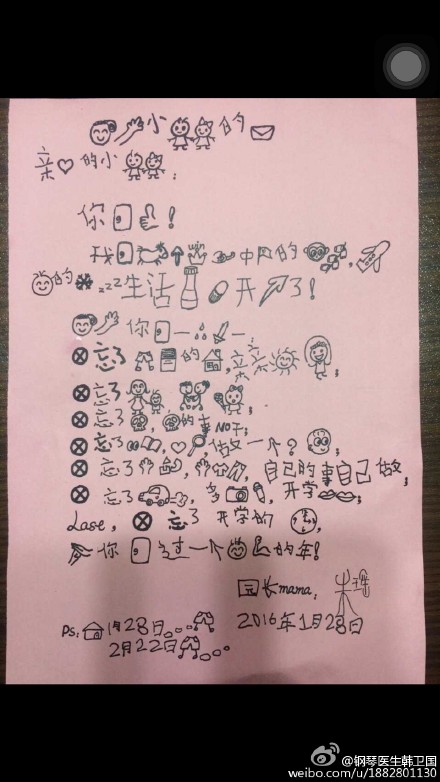 小 的
亲 的小 ：
你 ！
我 win 中 的 ，
的 zzz 生活 开 了！
你 一 一
忘了 的 ，亲亲 ；
忘了 ；
忘了 ， 的事NO干；
忘了 ， ，做一个？ ；
忘了 ， ，自己的事自己做；
忘了 ，多 ，开学 ；
Lase， 忘了 开学的 ，
你 过一个 的年！
园长mama：
Ps: 1月28日... 2016年1月28日
2月22日 ...
@钢琴医生韩卫国
weibo.com/u/1882801130